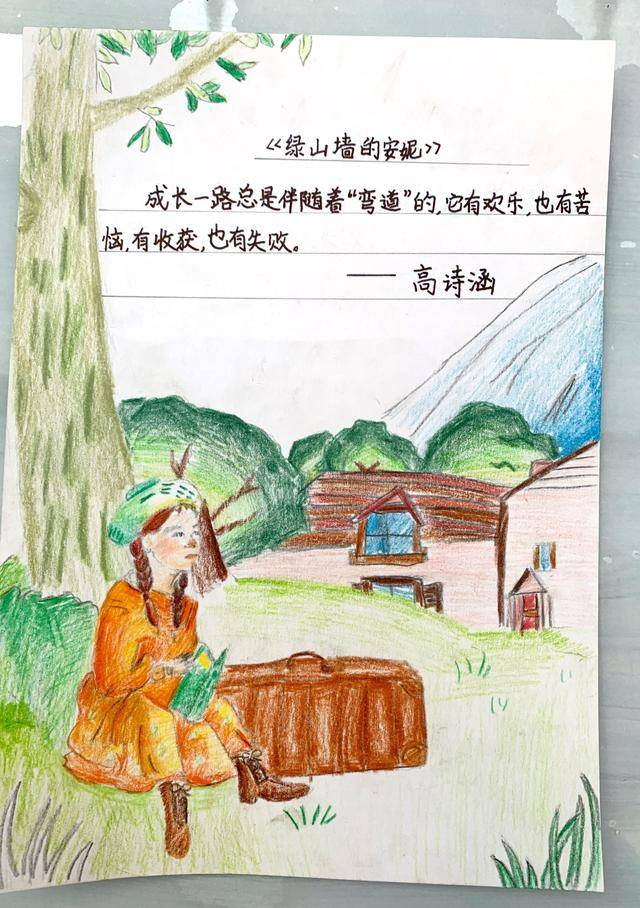 《绿山墙的安妮》
成长一路总是伴随着“弯道”的,它有欢乐,也有苦
恼,有收获,也有失败。
—— 高诗涵